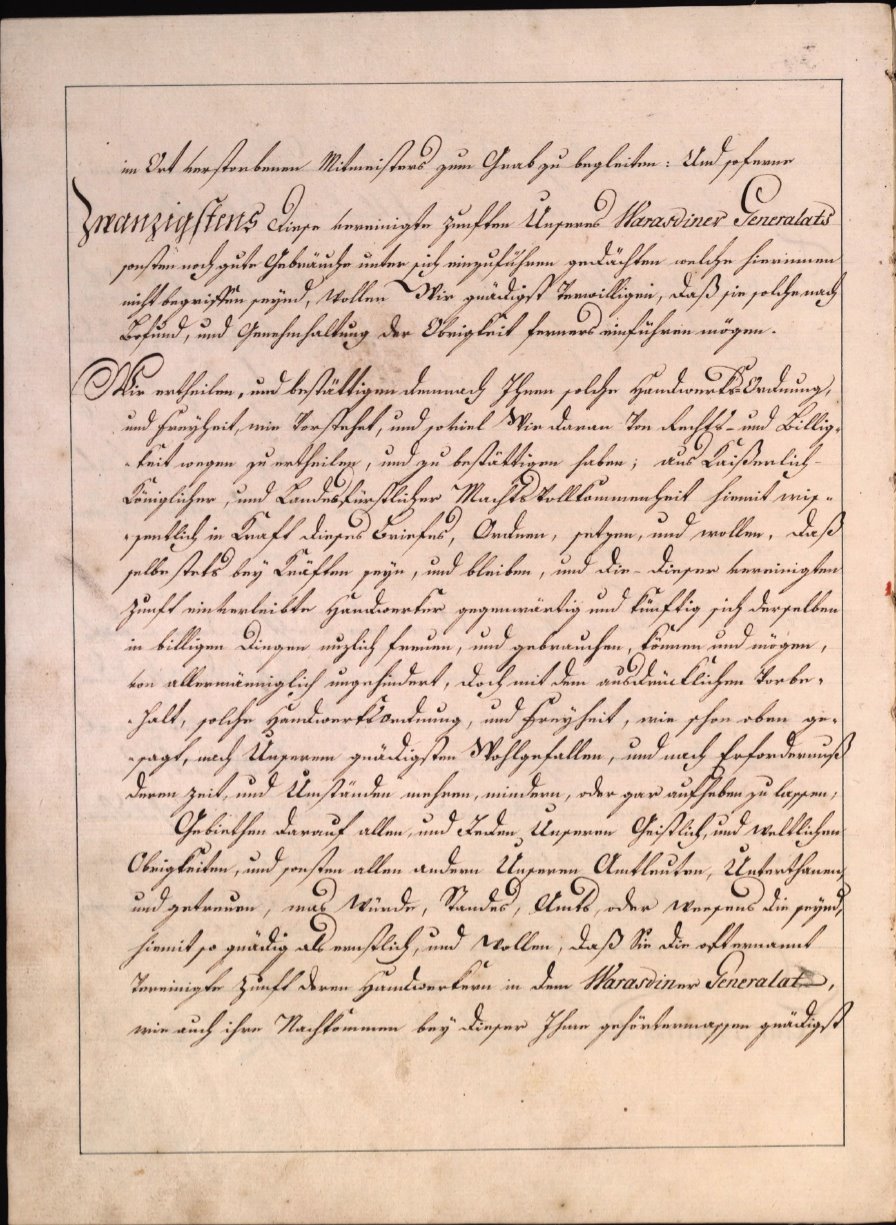 im Ort verstorbenen Mitmeisters zum Grab zu begleiten: Und soferne
Zwanzigstens Diese vereinigte Zunften Unseres Warasdiner Generalats
sonsten noch gute Gebräuche unter sich einzuführen gedächten welche hierinnen
nicht begriffen seynd, wollen Wir gnädigst verwilligen, daß sie solche nach
Befund, und Genehmhaltung der Obrigkeit ferners einführen mögen.
Wir ertheilen, und bestättigen demnach Ihnen solche Handwerks-Ordnung,
und Freyheit, wie vorstehet, und soviel Wir daran von Rechts- und Billig-
-keit wegen zu ertheilen, und zu bestättigen haben; aus Kaißerlich-
Königlicher, und Landesfürstlicher Machts Vollkommenheit hiemit wis-
-sentlich in Kraft dieses Briefes, Ordnen, setzen, und wollen, daß
selbe stets bey Kräften seyn, und bleiben, und die- dieser vereinigten
Zunft einverleibte Handwerker gegenwärtig und künftig sich derselben
in billigen Dingen nuzlich freuen, und gebrauchen, können und mögen,
von allermänniglich ungehindert, doch mit dem ausdrücklichen Vorbe-
-halt, solche Handwerksordnung, und Freyheit, wie schon oben ge-
-sagt, nach Unserem gnädigsten Wohlgefallen, und nach Erfordernuß
deren Zeit, und Umständen mehren, mindern, oder gar aufheben zu lassen;
Gebiethen darauf allen, und Jeden Unseren Geistlich, und weltlichen
Obrigkeiten, und sonsten allen andern Unseren Amtleuten, Unterthanen,
und getreuen, was Würde, Standes, Amts, oder Weesens die seynd,
hiemit so gnädig als ernstlich, und wollen, daß Sie die oft ernannt
vereinigte Zunft deren Handwerkern in dem Warasdiner Generalat,
wie auch ihre Nachkommen bey dieser Ihme gehörtermassen gnädigst